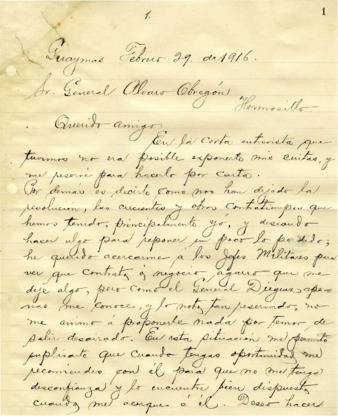 1.
1
Guaymas Febrero 29. de 1916.
Sr. General Alvaro Obregón
Hermosillo
Querido amigo,
En la corta entrevista que
tuvimos no era posible exponerte mis cuitas, y
me reservé para hacerlo por carta.
Por demas es decirte como nos han dejado la
revolucion, las crecientes y otros contratiempos que
hemos tenido, principalmente yó, y deseando
hacer algo para reponer un poco lo perdido,
he querido acercarme a los Jefes Militares para
ver que contrata, ó negocio, agarro que me
deje algo, pero como el General Dieguez, ape-
nas me conoce, y lo noté tan reservado, no
me animo á proponerle nada por temor de
salir desairado. En esta situacion me permito
suplicarte que cuando tengas oportunidad me
recomiendes con él para que no me tenga
desconfianza y lo encuentre bien dispuesto
cuando me acerque á él. Deseo hacer